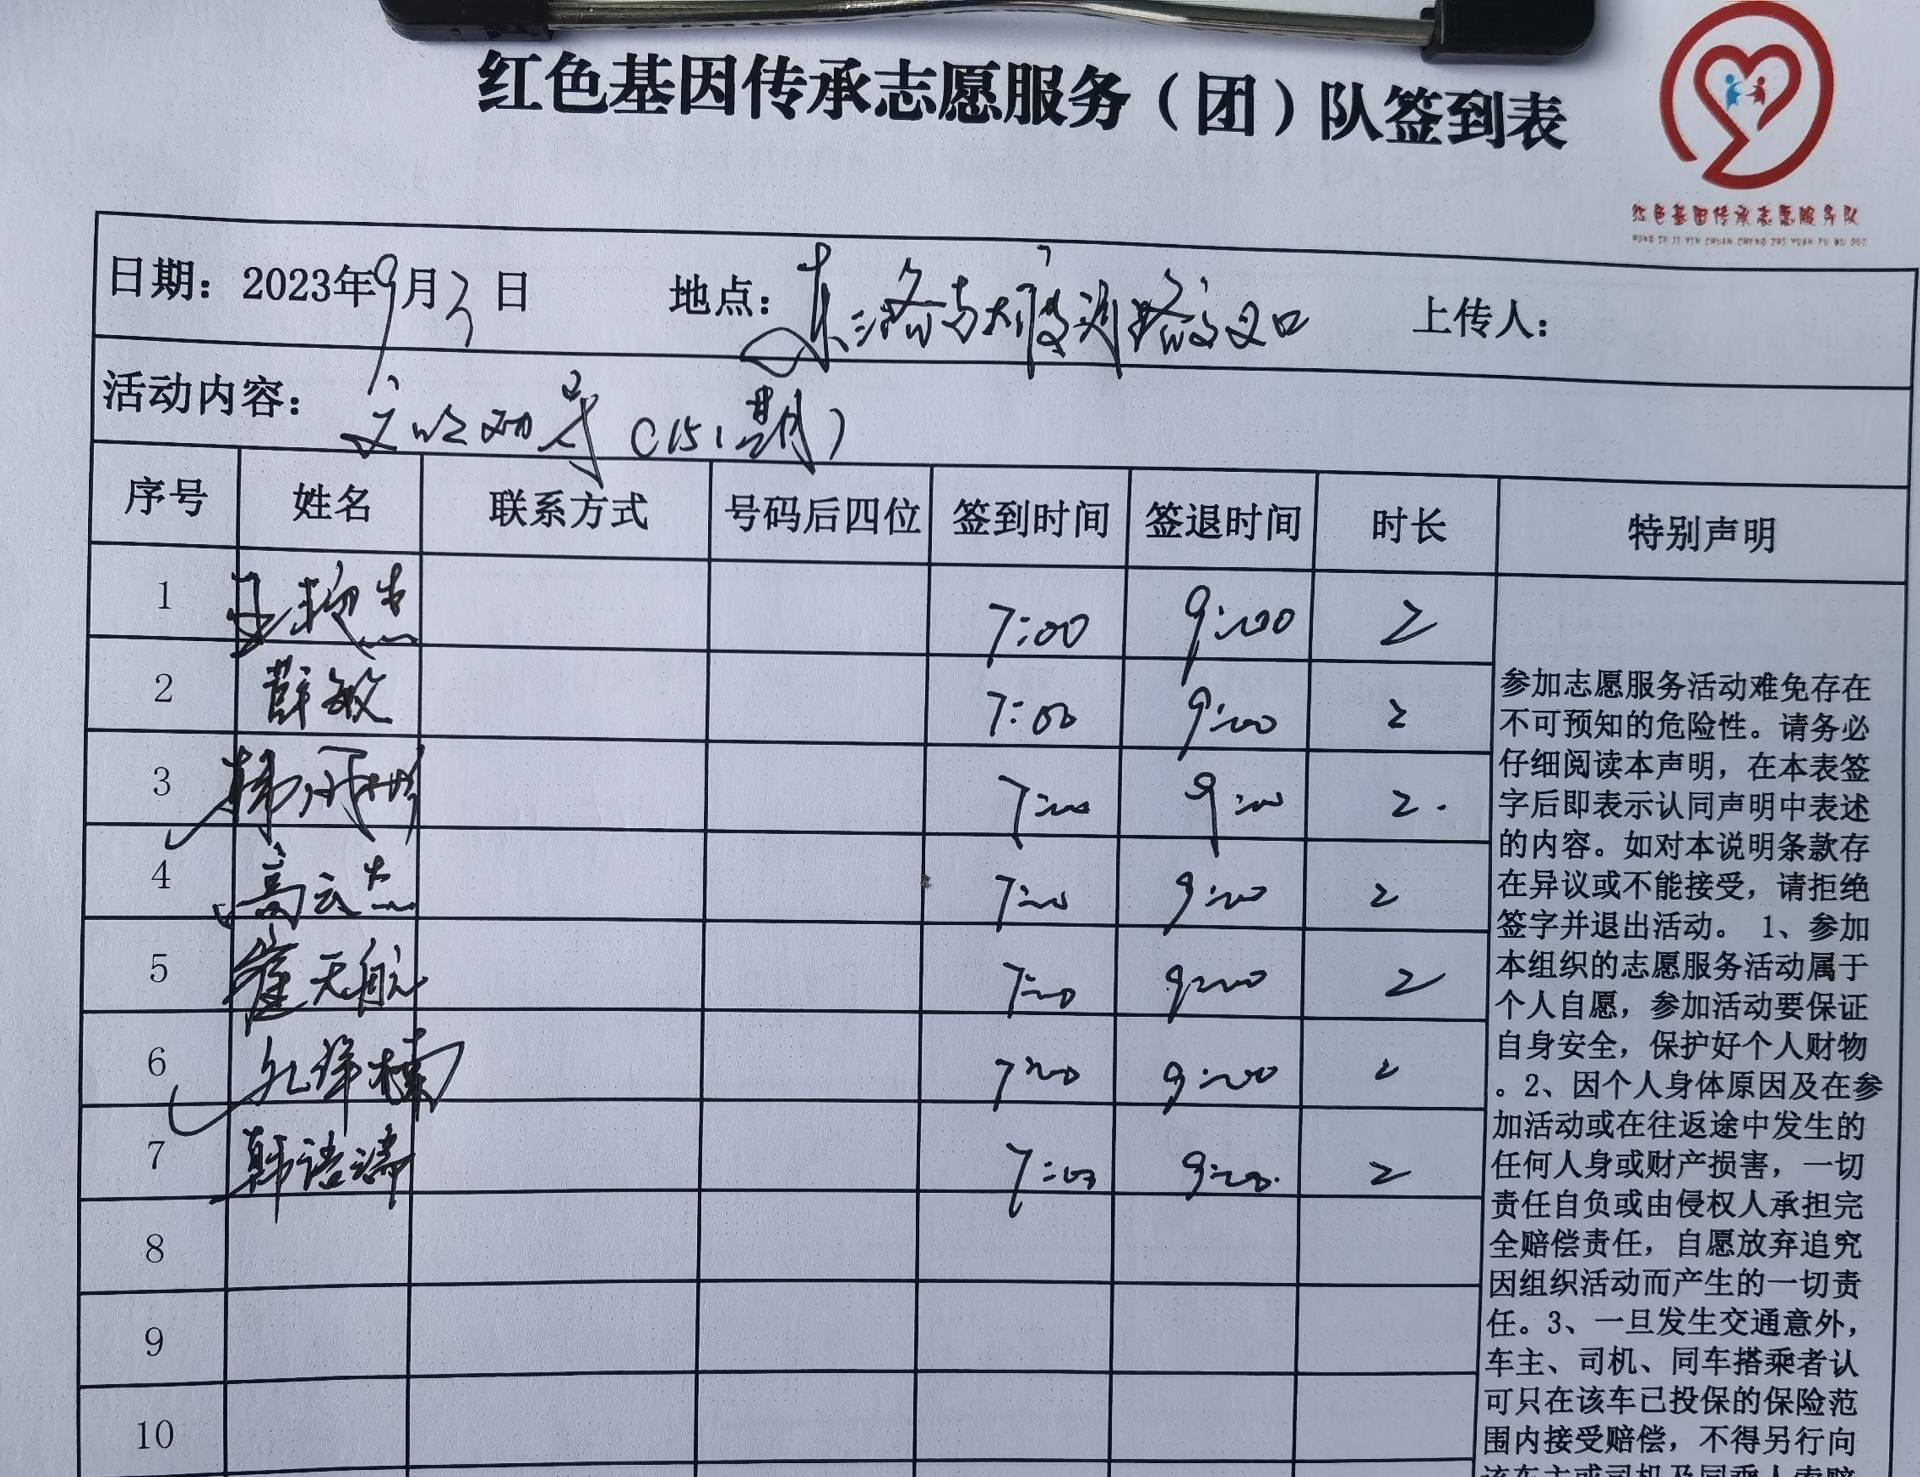 红色基因传承志愿服务（团）队签到表
红色基因传承志愿服务队
HONG SE JI YIN CHUAN CHENG ZHI YUAN FU WU DUI
日期：2023年9月3日 地点：东三路与大渡河路交叉口 上传人：
活动内容：文明劝导（151期）
序号 姓名 联系方式 号码后四位 签到时间 签退时间 时长 特别声明
1 7:00 9:00 2
2 薛敏 7:00 9:00 2
3 7:00 9:00 2.
4 高云杰 7:00 9:00 2
5 崔天航 7:00 9:00 2
6 7:00 9:00 2
7 韩语涛 7:00 9:00 2
8
9
10
参加志愿服务活动难免存在
不可预知的危险性。请务必
仔细阅读本声明，在本表签
字后即表示认同声明中表述
的内容。如对本说明条款存
在异议或不能接受，请拒绝
签字并退出活动。 1、参加
本组织的志愿服务活动属于
个人自愿，参加活动要保证
自身安全，保护好个人财物
。2、因个人身体原因及在参
加活动或在往返途中发生的
任何人身或财产损害，一切
责任自负或由侵权人承担完
全赔偿责任，自愿放弃追究
因组织活动而产生的一切责
任。3、一旦发生交通意外，
车主、司机、同车搭乘者认
可只在该车已投保的保险范
围内接受赔偿，不得另行向
该车主或司机及同乘人索赔